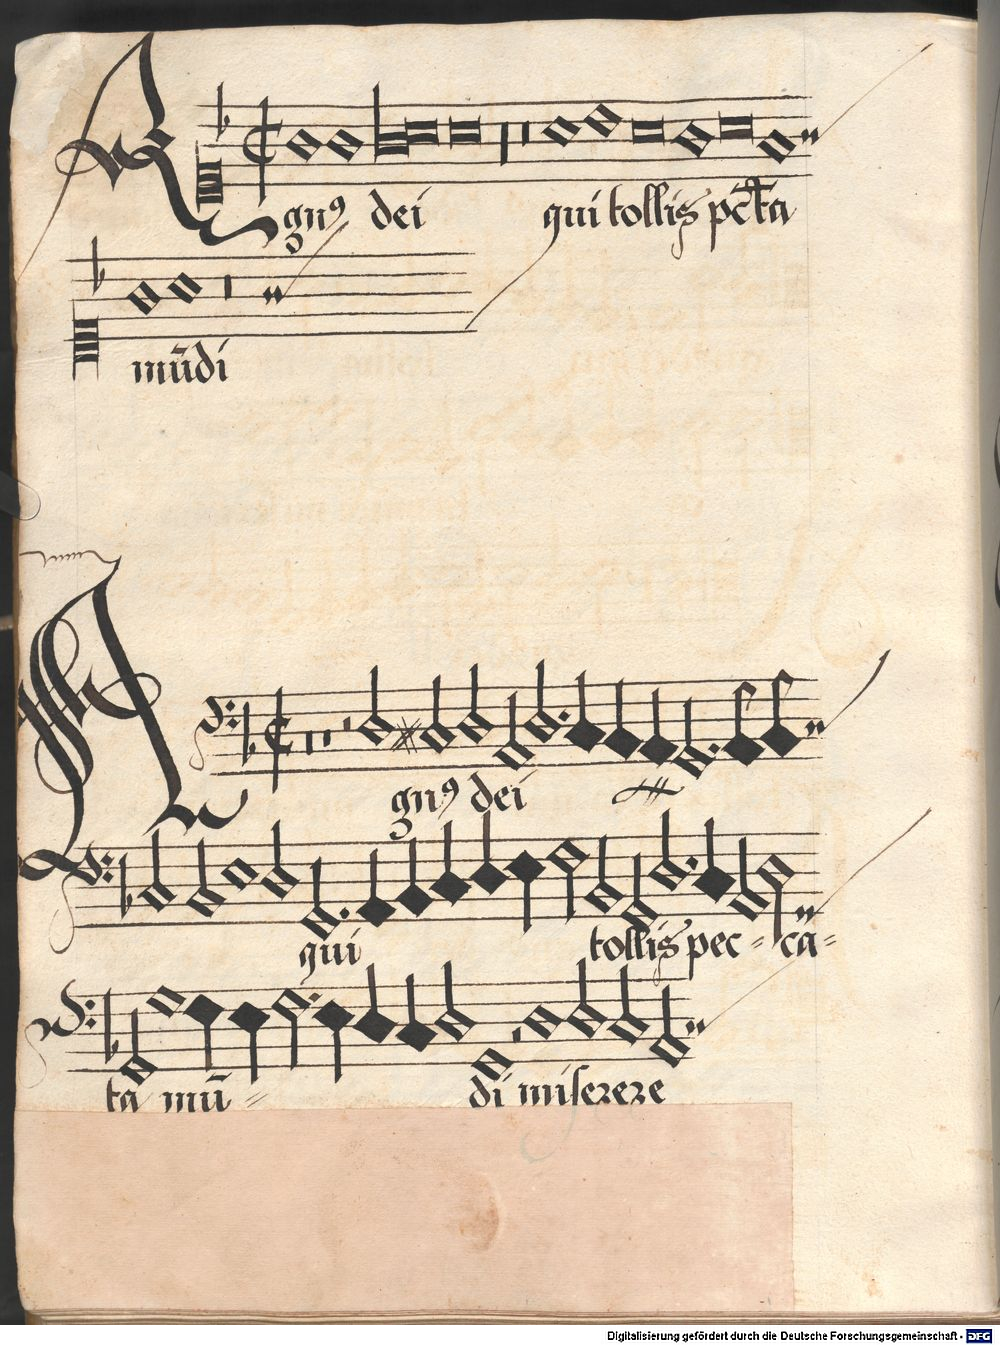 Agnꝰ dei qui tollis pc̄ta
mūdi
Agnꝰ dei
qui tollis pec= ca=
ta mū= di miserere
Digitalisierung gefördert durch die Deutsche Forschungsgemeinschaft - DFG